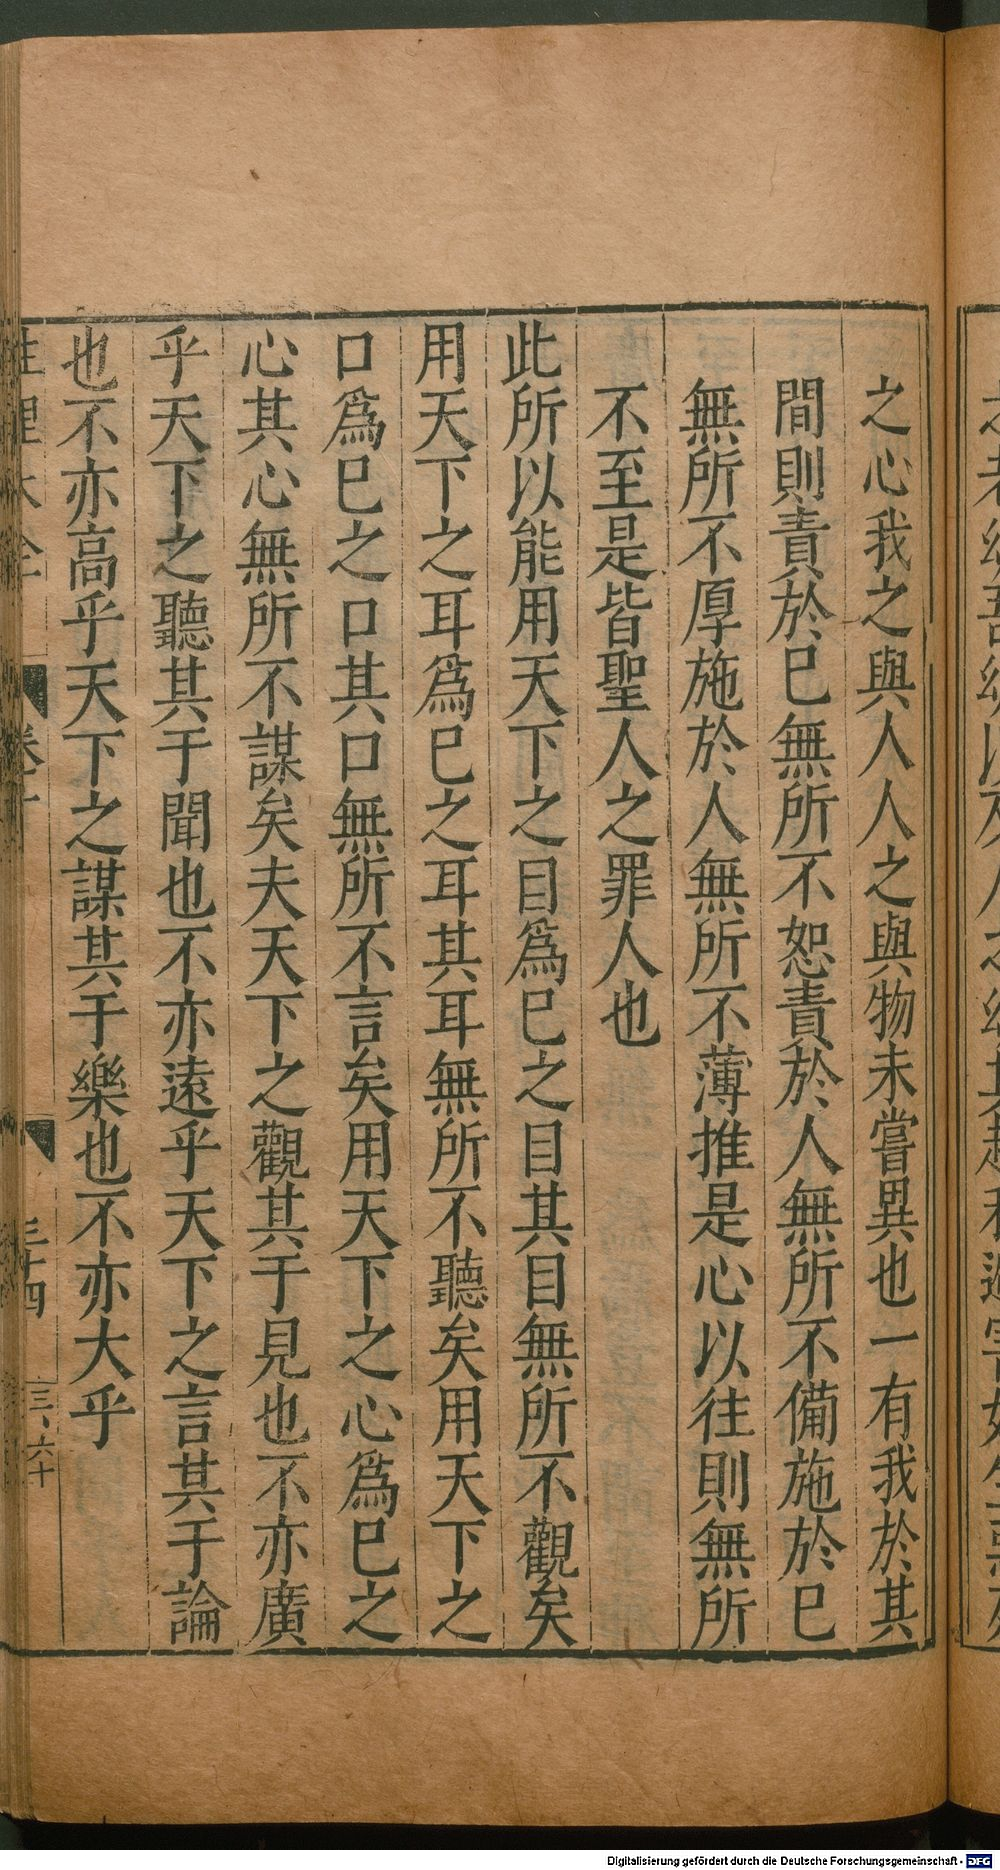 之心我之與人人之與物未嘗異也一有我於其
間則責於已無所不恕責於人無所不備施於已
無所不厚施於人無所不薄推是心以往則無所
不至是皆聖人之罪人也
此所以能用天下之目爲已之目其目無所不觀矣
用天下之耳爲已之耳其耳無所不聽矣用天下之
口爲已之口其口無所不言矣用天下之心爲已之
心其心無所不謀矣夫天下之觀其于見也不亦廣
乎天下之聽其于聞也不亦遠乎天下之言其于論
也不亦高乎天下之謀其于樂也不亦大乎
性理大全
三十四
三、六十
Digitalisierung gefördert durch die Deutsche Forschungsgemeinschaft - DFG